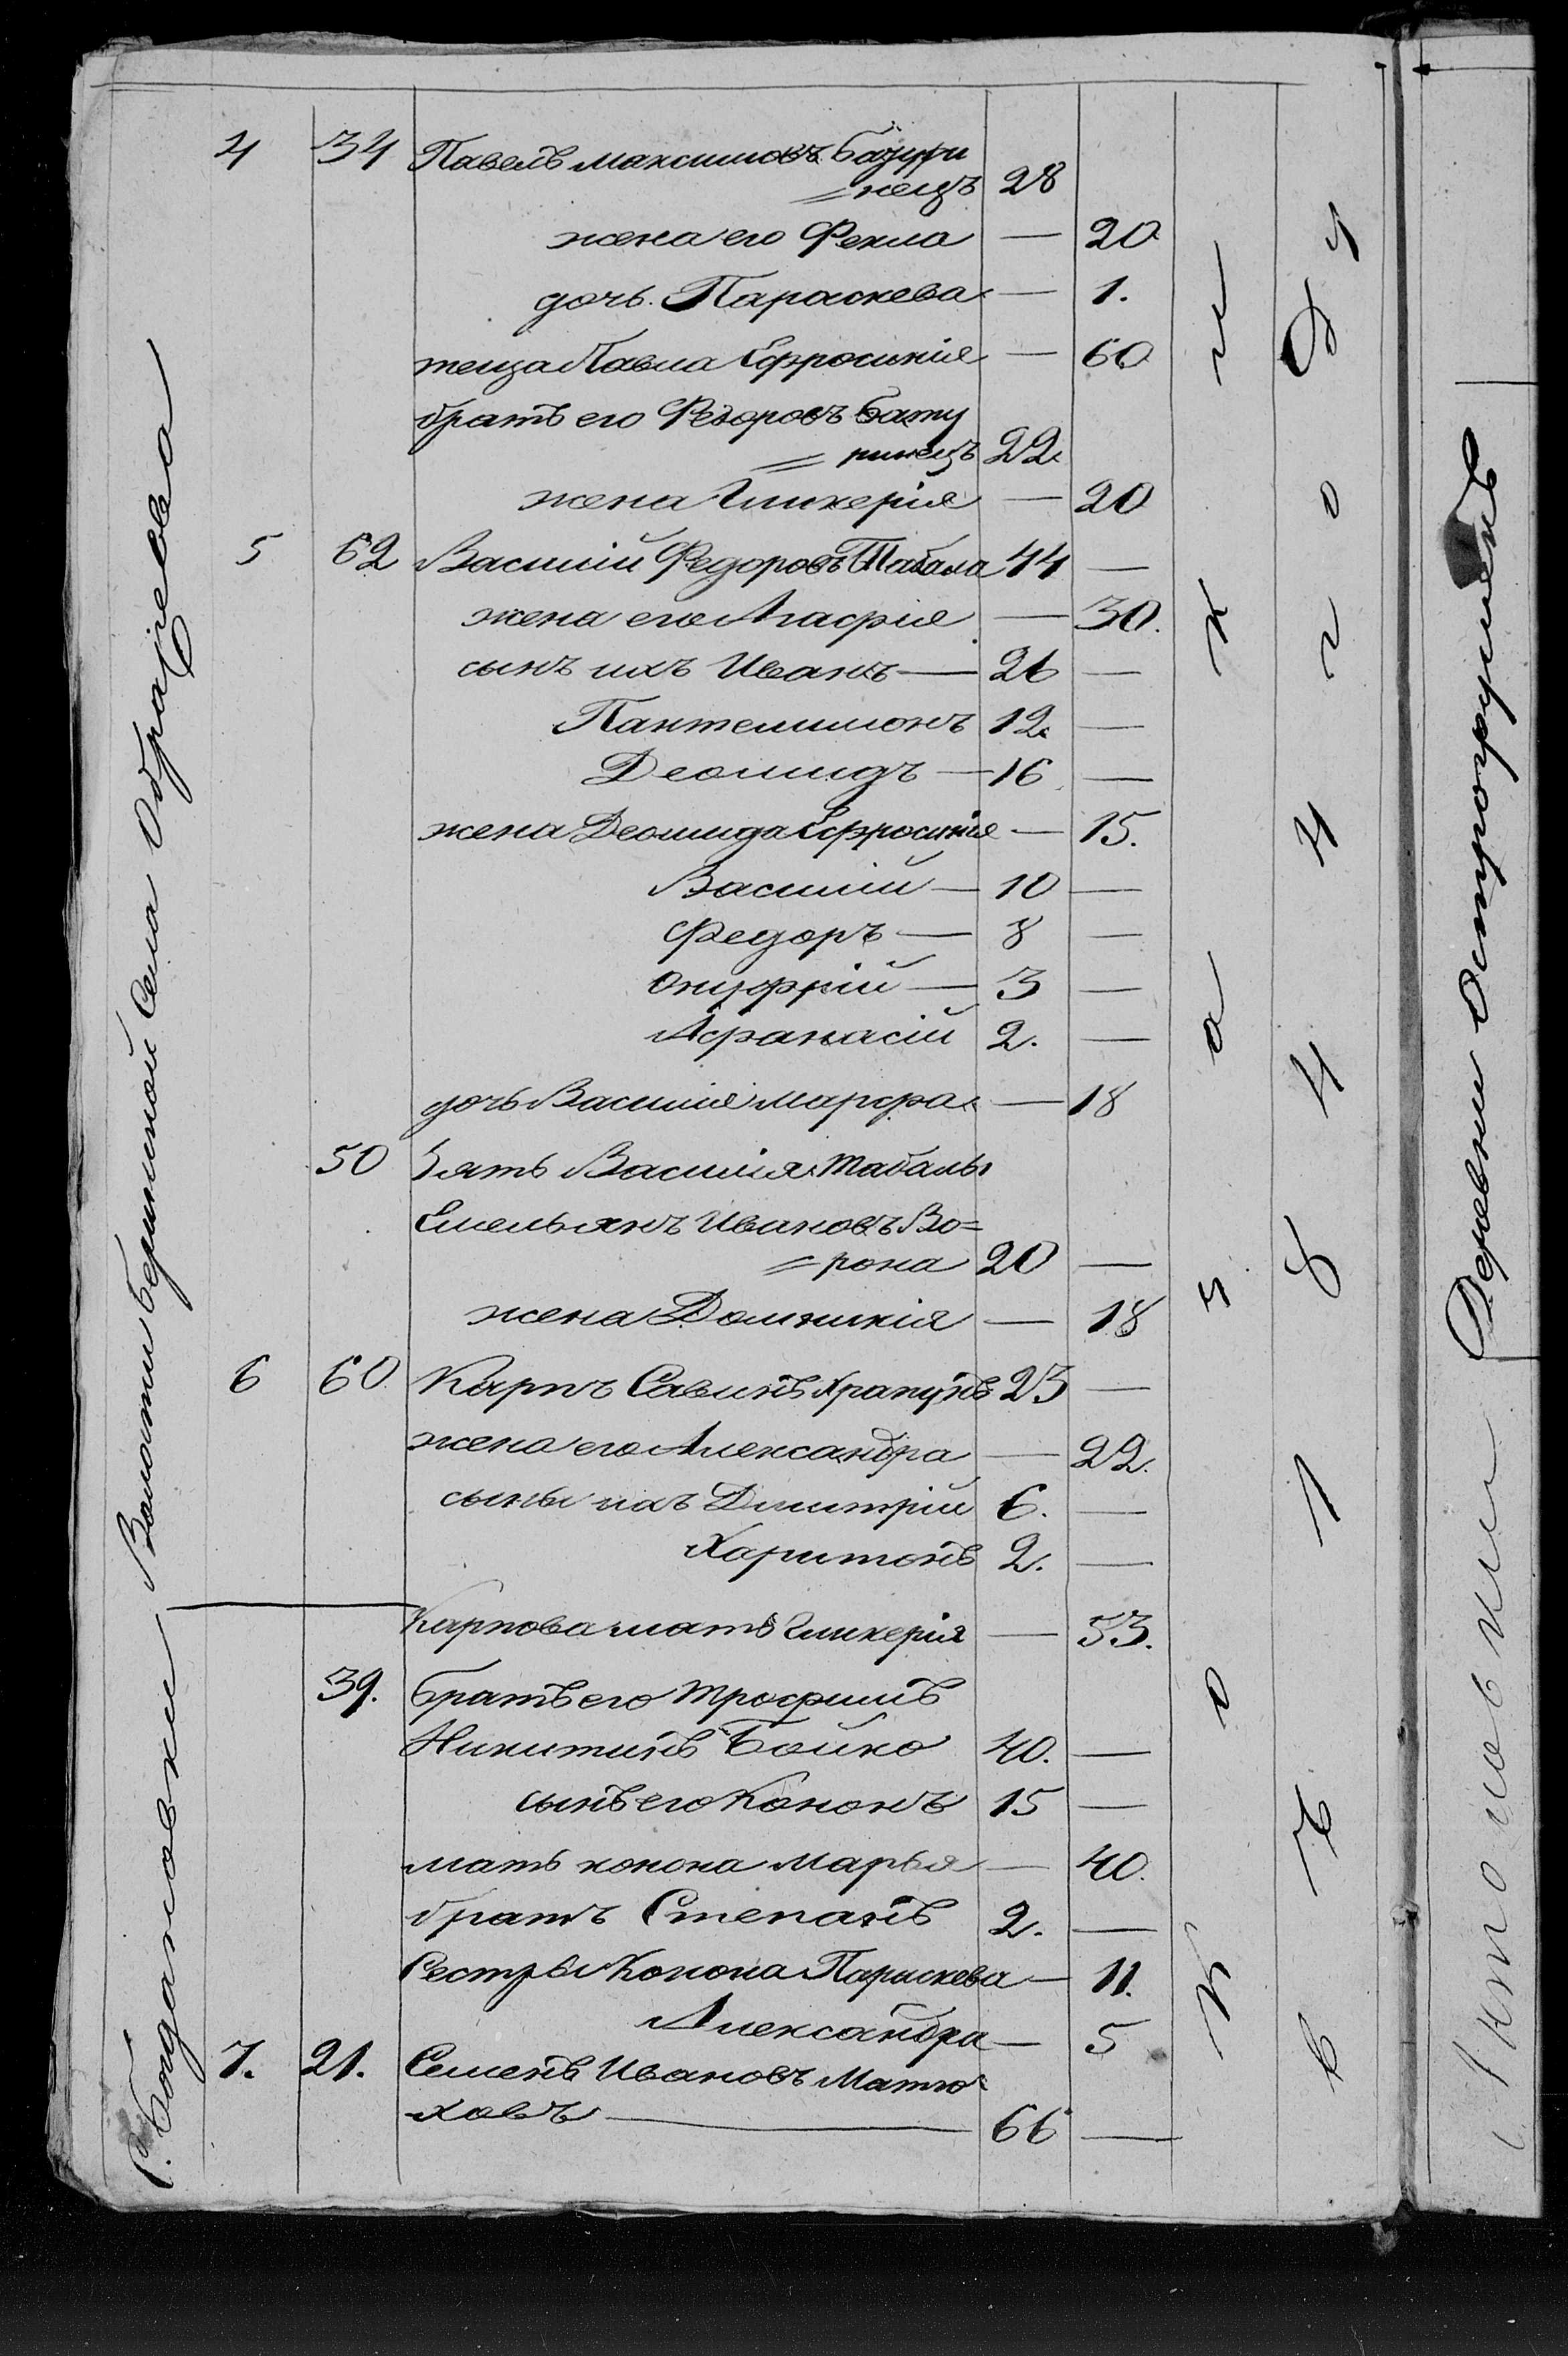 4 34 Павелъ Максимовъ Батури
=нецъ 28
жена его Фекла — 20
дочь Параскева — 1.
теща Павла Ефросинія — 60
братъ его Федоровъ Бату
=ринецъ 22.
жена Гликерія — 20
5 62 Василій Федоровъ Табала 44 —
жена его Агафія — 30.
сынъ ихъ Иванъ — 26 —
Пантелимонъ 12. —
Деомидъ — 16 —
жена Деомида Ефросинія — 15.
Василій — 10 —
Федоръ — 8 —
Онуфрій — 3 —
Афанасій 2. —
дочь Василія Марфа — 18
50 Зять Василія Табалы
Емельянъ Ивановъ Во=
=рона 20 —
жена Домникія — 18
6 60 Карпъ Савинъ Храпунъ 23 —
жена его Александра — 22.
сыны ихъ Дмитрій 6. —
Харитонъ 2. —
Карпова мать Гликерія — 53.
39. братъ его Трофимъ
Никитинъ Бойко 40. —
сынъ его Кононъ 15 —
мать Конона Марья — 40.
братъ Степанъ 2. —
Сестры Конона Параскева — 11.
Александра — 5
7. 21. Семенъ Ивановъ Матю
ховъ — 66 —
С. Богдановки
Волости
Села
К о з а к и
въ 1844 году
Деревни